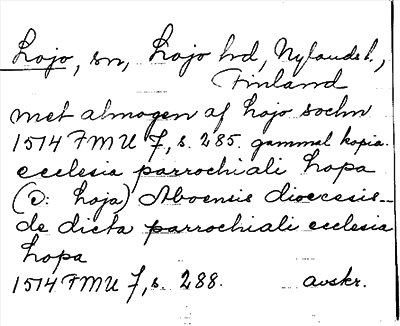 Lojo, sn, Lojo hd, Nylands l.,
Finland
met almogen af Lojo sochn
1514 FMU 7, s. 285. gammal kopia.
ecclesia parrochiali Lopa
(ɔ: Loja) Aboensis diocesis –
de dicta parrochiali ecclesia
Lopa
1514 FMU 7, s. 288. avskr.